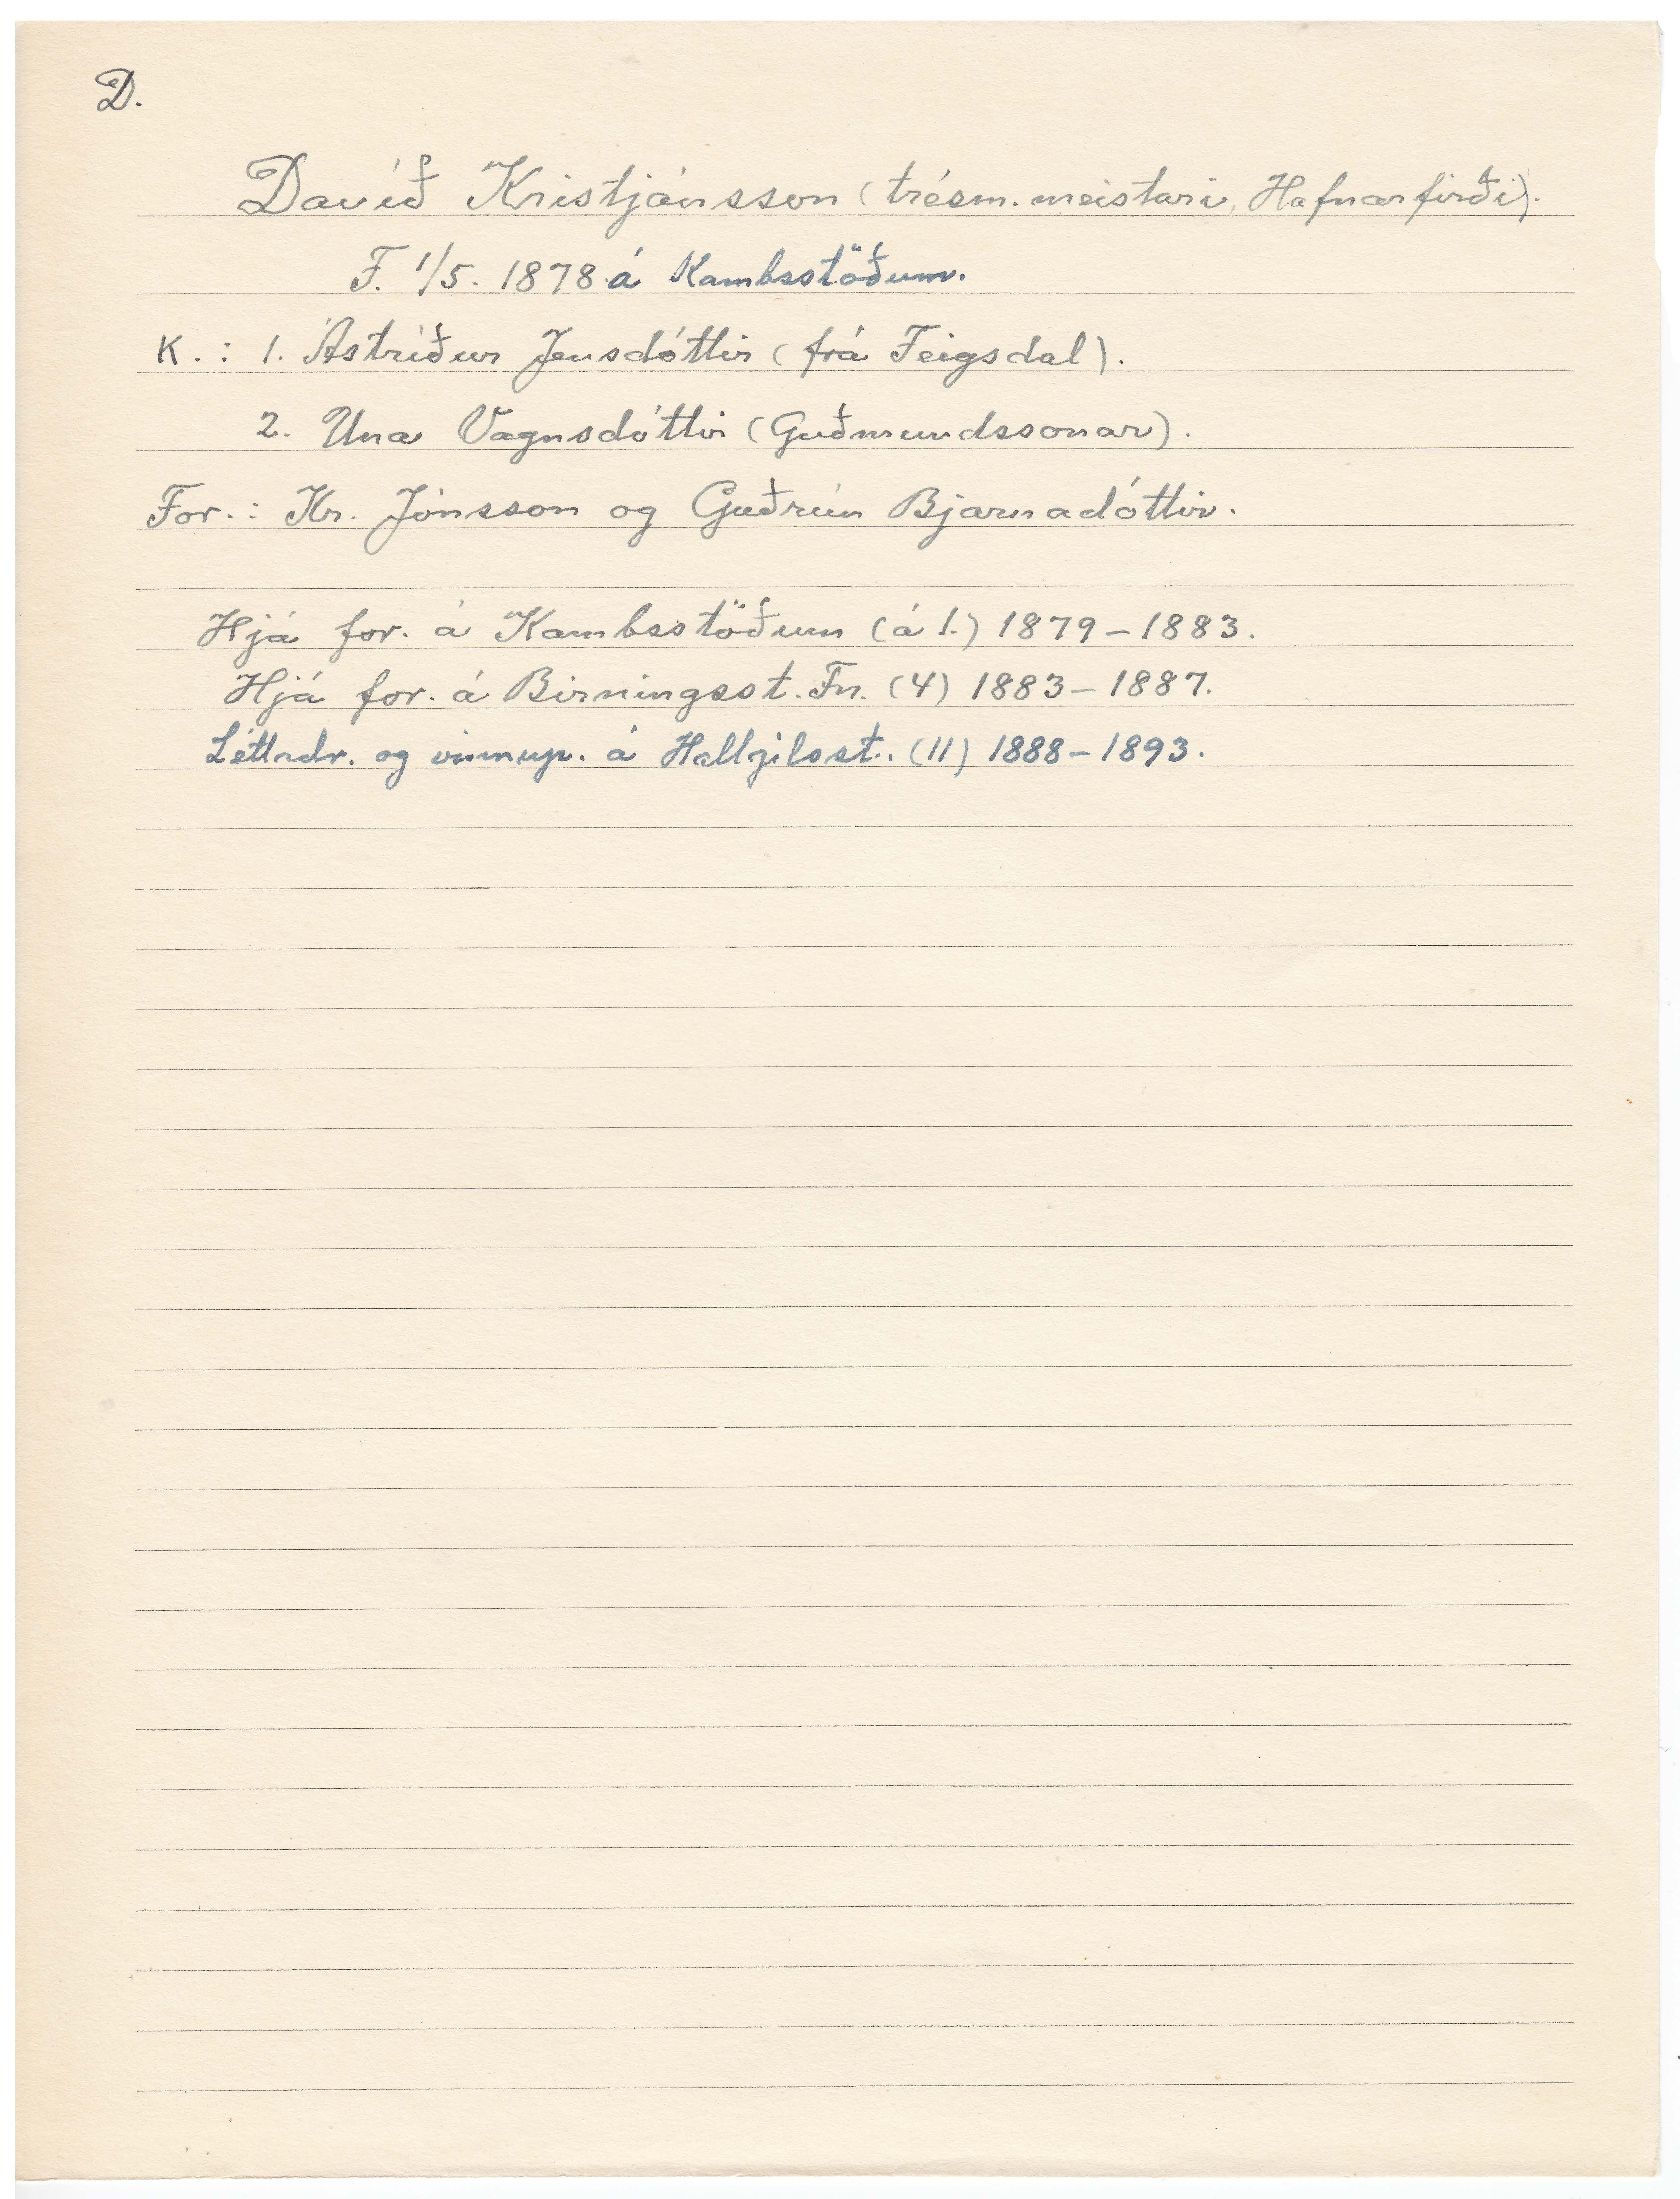 D.
Davíð Kristjánsson (trésm. meistari, Hafnarfirði).
F. 1/5. 1878 á Kambsstöðum.
K. : 1. Ástríður Jensdóttir (frá Feigsdal).
2. Una Vagnsdóttir (Guðmundssonar).
For. : Kr. Jónsson og Guðrún Bjarnadóttir.
Hjá for. á Kambsstöðum (á 1.) 1879-1883.
Hjá for. á Birningsst. Fn. (4) 1883-1887.
Léttadr. og vinnup. á Hallgilsst. (11) 1888-1893.